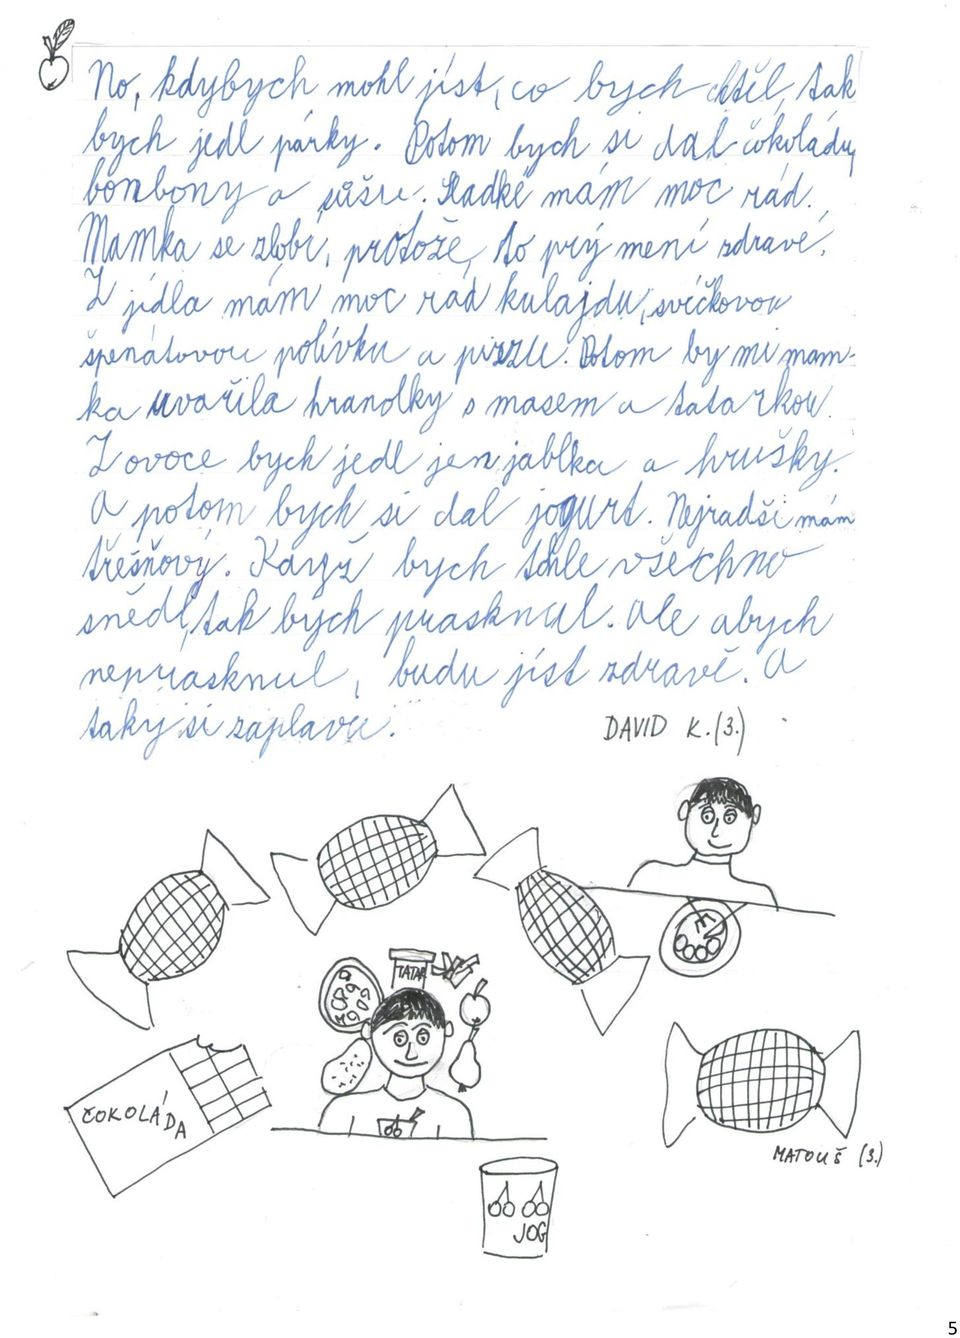 No, kdybych mohl jíst, co bych chtěl, tak
bych jedl párky. Potom bych si dal čokoládu,
bonbony a sůšu. Sladké mám moc rád.
Mamka se zlobí, protože, to prý mení zdravé.
Z jídla mám moc rád kulajdu, svíčkovou
špenátovou polívku a pizzu. Potom by mi mam-
ka uvařila hranolky s masem a tatarkou.
Z ovoce bych jedl jen jablka a hrušky.
A potom bych si dal jogurt. Nejradši mám
třešňový. Když bych tohle všechno
snědl, tak bych prasknul. Ale abych
neprasknul, budu jíst zdravě. A
taky si zaplavu.
DAVID K. (3.)
TATAR
ČOKOLÁDA
MATOUŠ (3.)
JOG
5